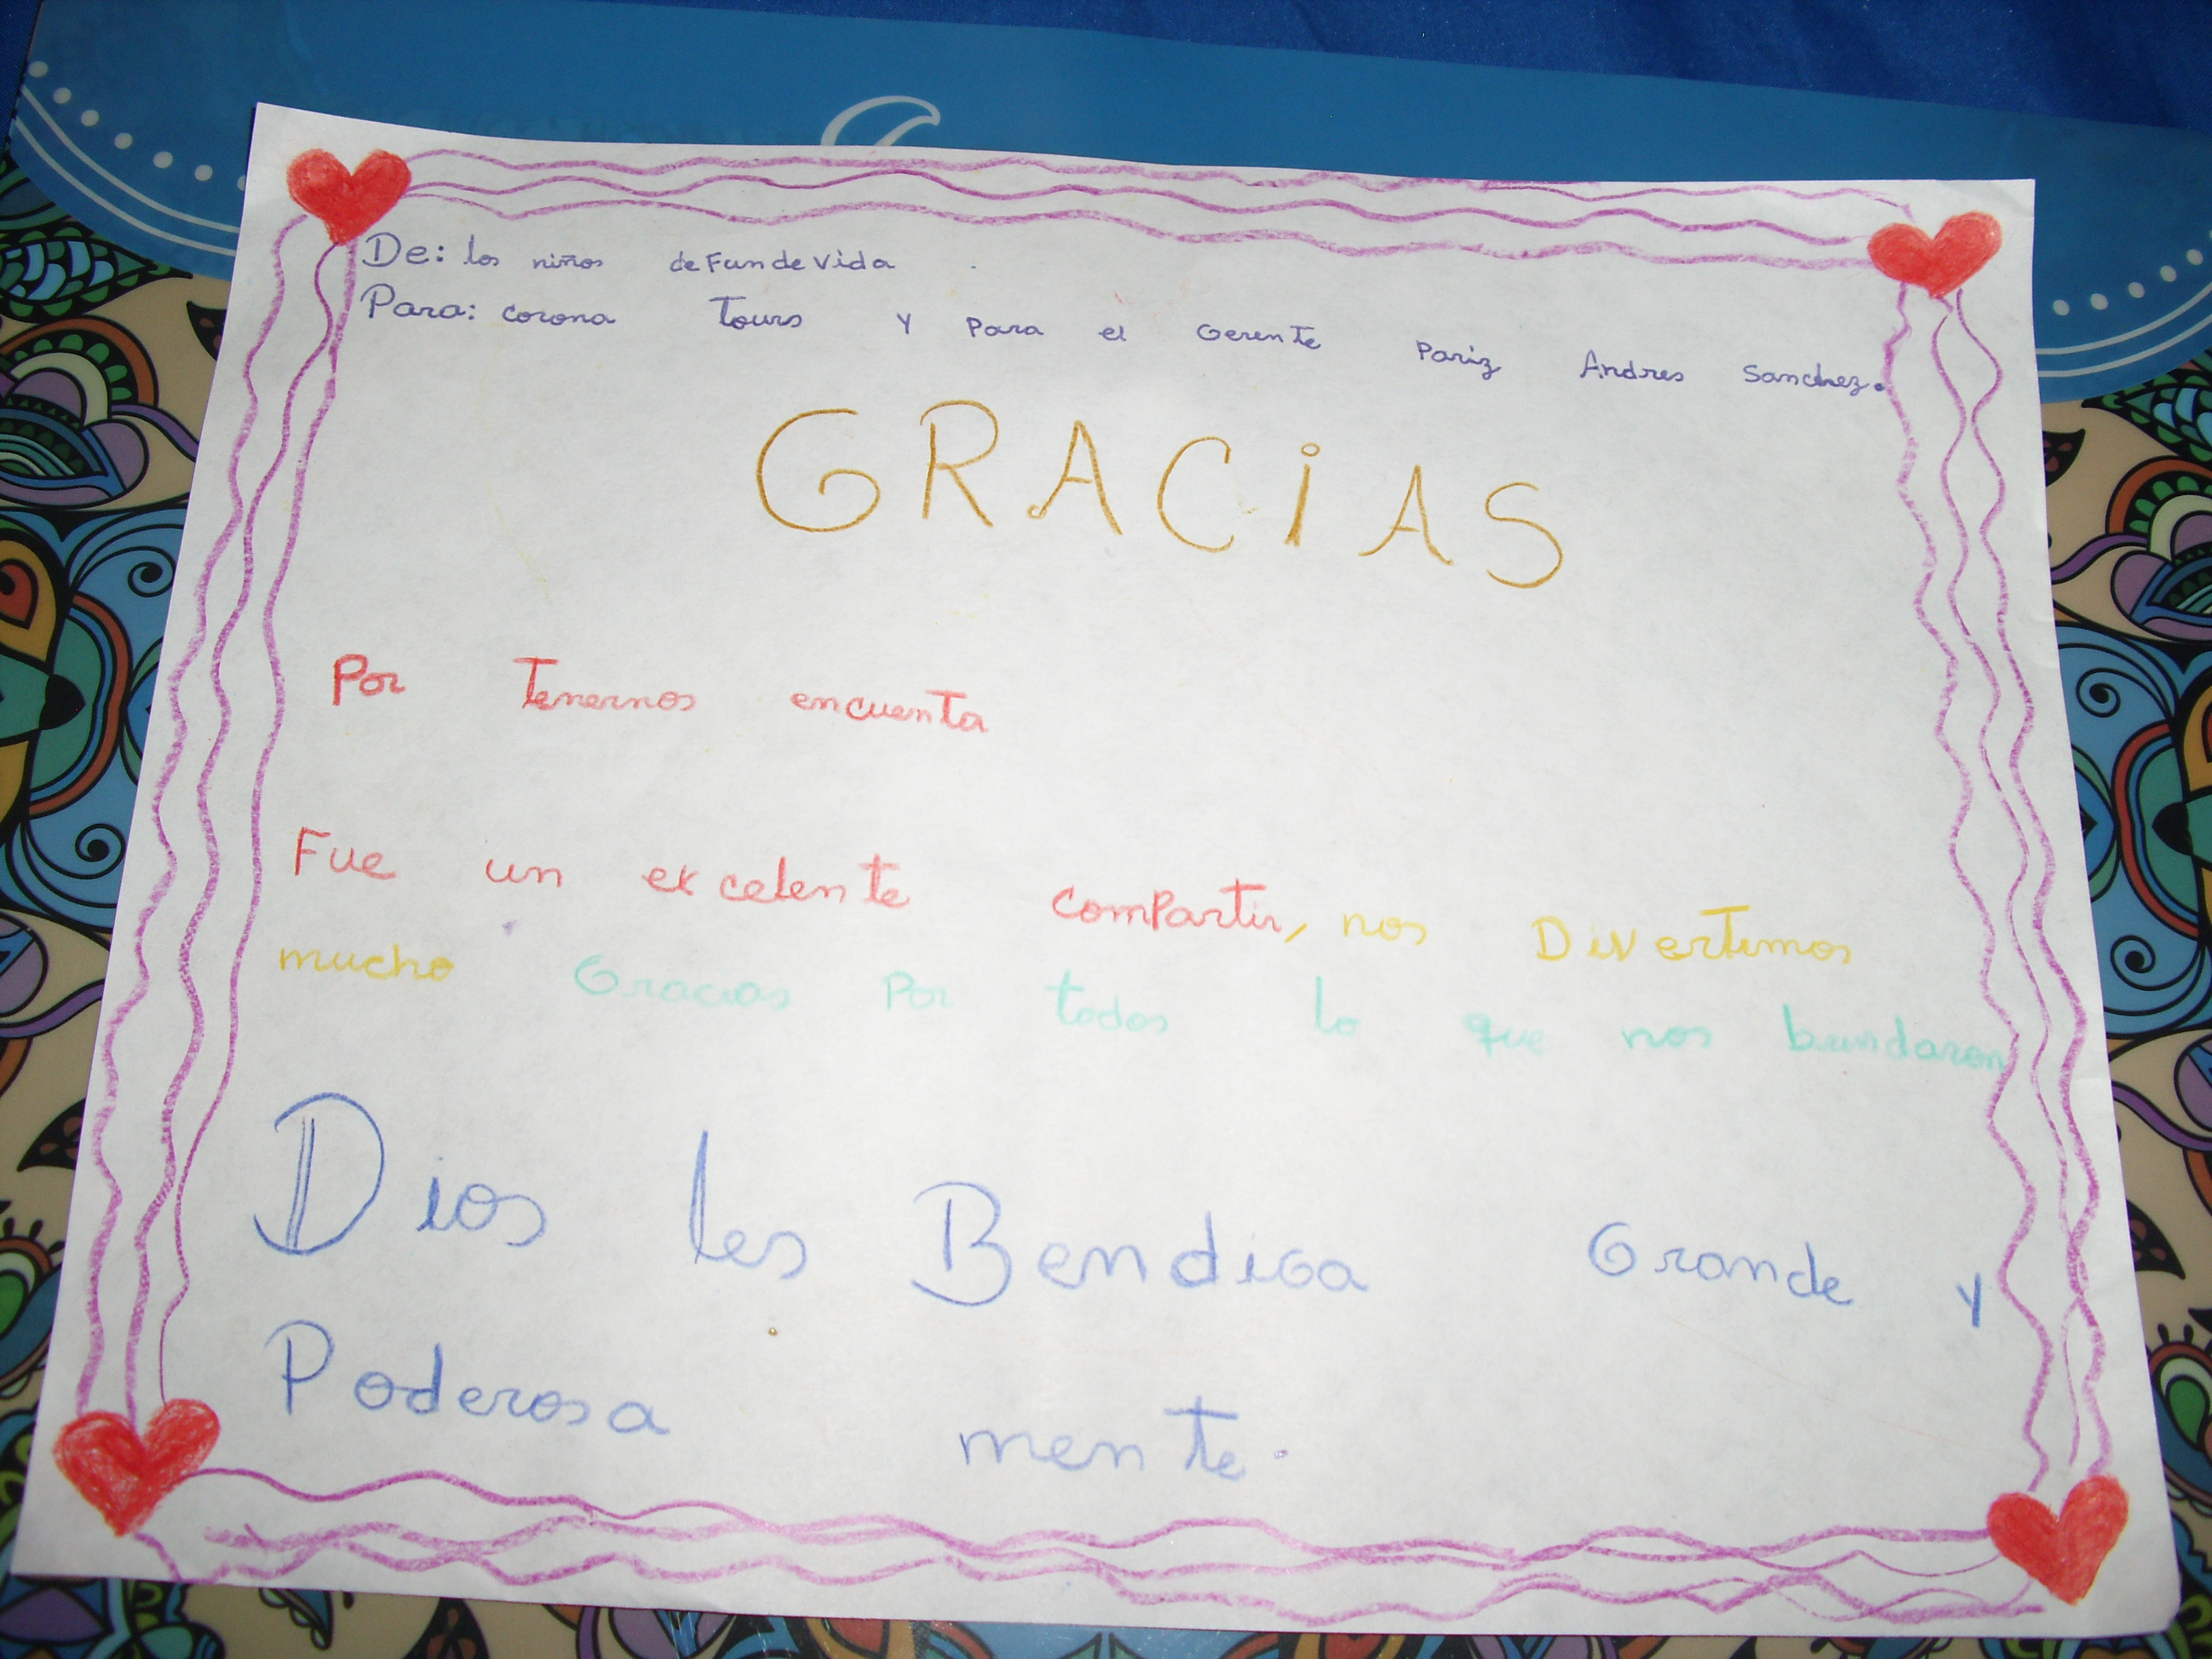 De: los niños de Fundevida
Para: corona Tours y para el Gerente Pariz Andres Sanchez.
GRACiAS
Por Tenernos encuenta
Fue un excelente compartir, nos Divertimos
mucho Gracias Por todos lo que nos brindaron
Dios les Bendiga Grande y
Poderosa mente.